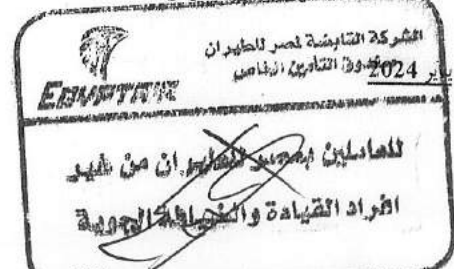 الشركة القابضة لمصر للطيران
صندوق التأمين الخاص
يناير 2024
EGYPTAIR
للعاملين بمصر للطيران من غير
افراد القيادة والضيافة الجوية